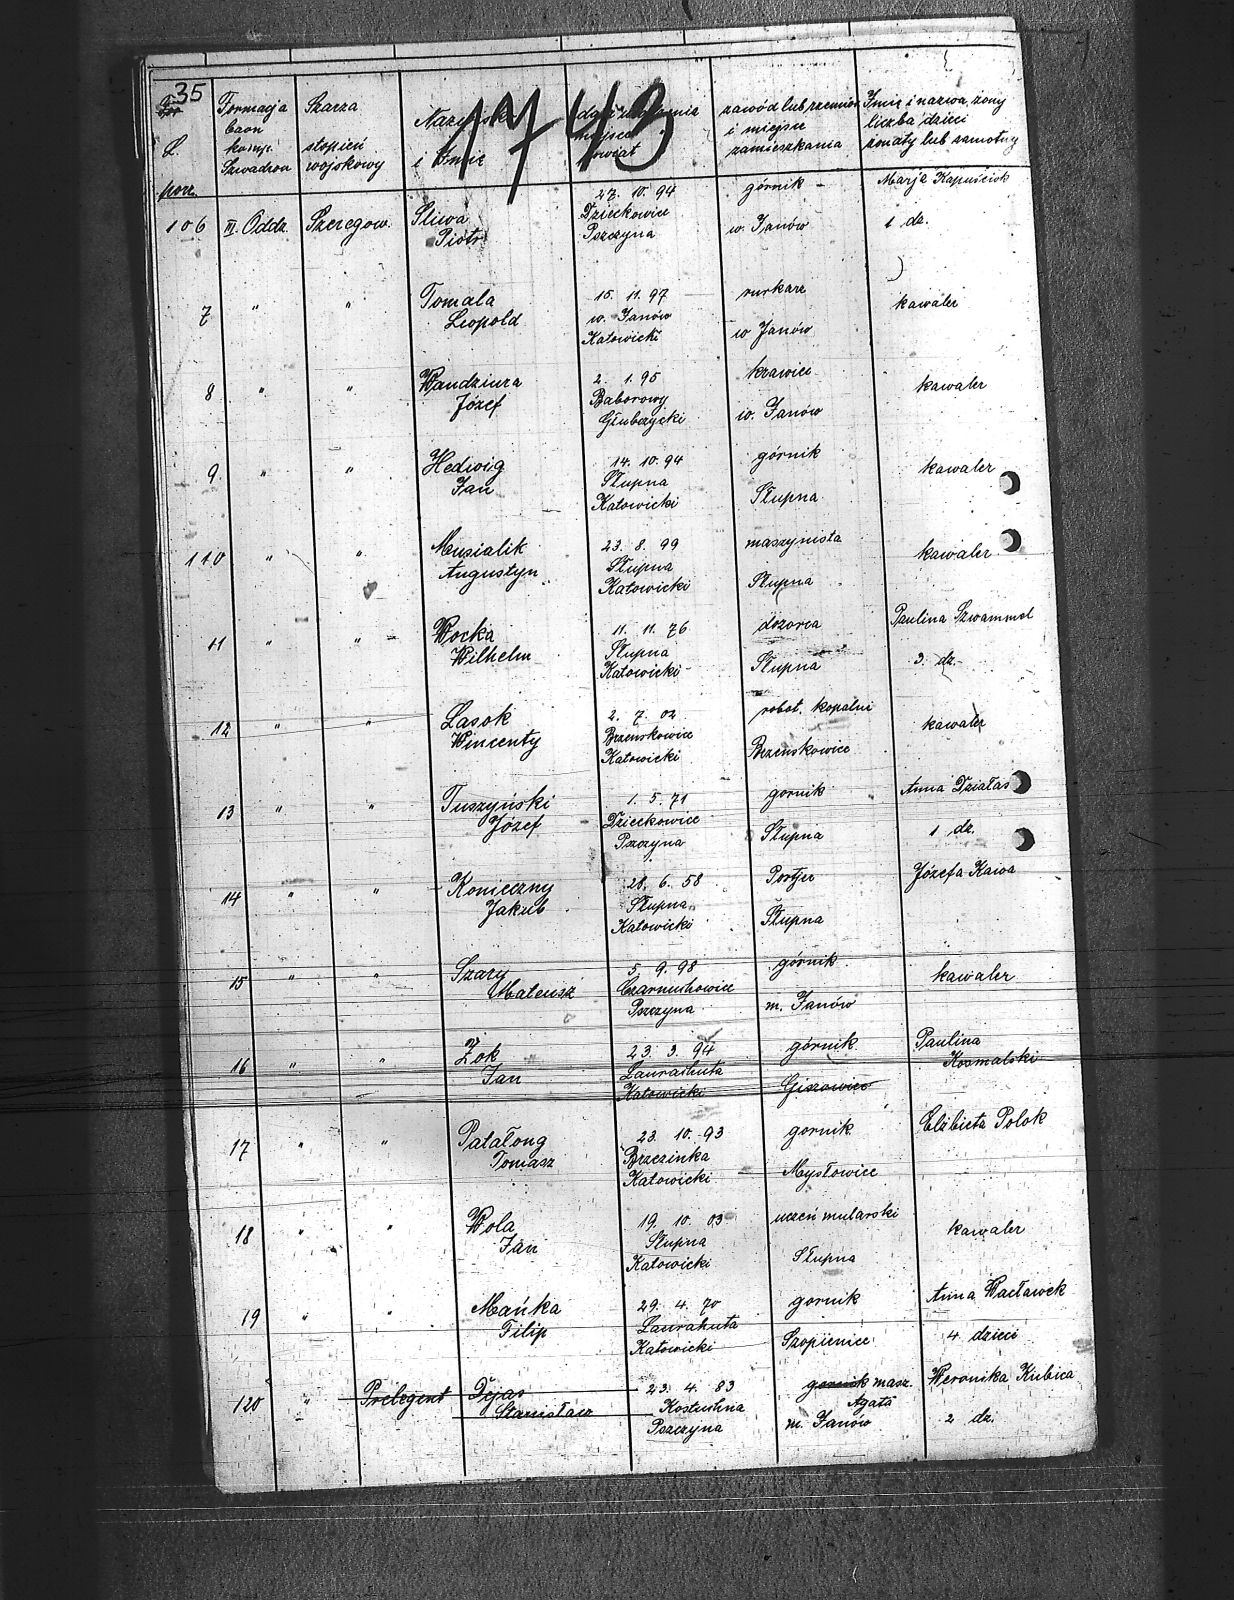 35
1743
L.
porz.
Formacja
baon
komp.
Szwadron
Szarza
stopień
wojskowy
Nazwisko
i Imię
miejsce
powiat
zawód lub rzemiosło
i miejsce
zamieszkania
Imię i nazwa, żony
liczba dzieci
żonaty lub samotny
106 III. Oddz. Szeregow. Śliwa
Piotr
27. 10. 94
Dzieckowice
Pszczyna
górnik
w. Janów
Marja Kapuściok
1 dz.
7 " " Tomala
Leopold
15. 11. 97
w. Janów
Katowicki
rurkarz
w Janów
kawaler
8 " " Wandziura
Józef
2. 1. 95
Baborowy
Głubczycki
krawiec
w. Janów
kawaler
9 " " Hedwig
Jan
14. 10. 94
Słupna
Katowicki
górnik
Słupna
kawaler
110 " " Musialik
Augustyn
23. 8. 99
Słupna
Katowicki
maszynista
Słupna
kawaler
11 " " Wocka
Wilhelm
11. 11. 76
Słupna
Katowicki
dozorca
Słupna
Paulina Szwammel
3. dz.
12 " " Lasok
Wincenty
2. 7. 02
Brzenskowice
Katowicki
robot. kopalni
Brzenskowice
kawaler
13 " " Tuszyński
Józef
1. 5. 71
Dzieckowice
Pszczyna
gornik
Słupna
Anna Działas
1 dz.
14 " " Konieczny
Jakub
28. 6. 58
Słupna
Katowicki
Portjer
Słupna
Józefa Kawa
15 " " Szary
Mateusz
5. 9. 98
Czarnuchowice
Pszczyna
górnik
m. Janów
kawaler
16 " " Żok
Jan
23. 3. 94
Laurahuta
Katowicki
górnik
Giszowice
Paulina
Kosmalski
17 " " Patałong
Tomasz
23. 10. 93
Brzezinka
Katowicki
gornik
Mysłowice
Elżbieta Polok
18 " " Wola
Jan
19. 10. 03
Słupna
Katowicki
uczeń mularski
Słupna
kawaler
19 " " Mańka
Filip
29. 4. 70
Laurahuta
Katowicki
gornik
Szopienice
Anna Wacławek
4 dzieci
120 " Prelegent Dyas
Stanisław
23. 4. 83
Kostuchna
Pszczyna
gornik masz.
Agata
m. Janów
Weronika Kubica
2 dz.